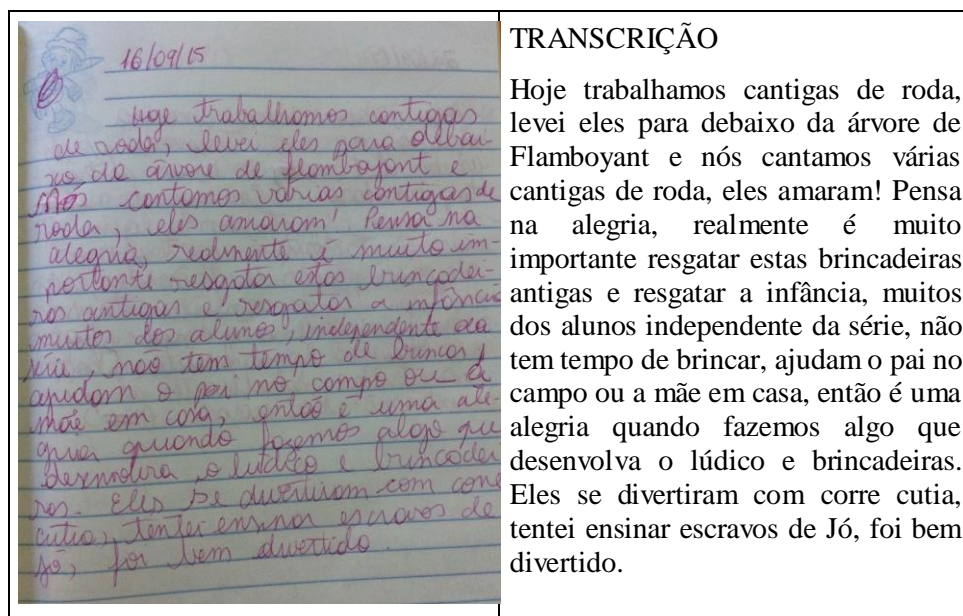 16/09/15
Hoje trabalhamos cantigas
de roda, levei eles para debai-
xo da árvore de flamboyant e
Nós cantamos várias cantigas de
roda, eles amaram! Pensa na
alegria, realmente é muito im-
portante resgatar estas brincadei-
ras antigas e resgatar a infância
muitos dos alunos, independente da
série, não tem tempo de brincar,
ajudam o pai no campo ou a
mãe em casa, então é uma ale-
gria quando fazemos algo que
desenvolva o lúdico e brincadei
ras. Eles se divertiram com corre
cutia, tentei ensinar escravos de
jó, foi bem divertido.
TRANSCRIÇÃO
Hoje trabalhamos cantigas de roda,
levei eles para debaixo da árvore de
Flamboyant e nós cantamos várias
cantigas de roda, eles amaram! Pensa
na alegria, realmente é muito
importante resgatar estas brincadeiras
antigas e resgatar a infância, muitos
dos alunos independente da série, não
tem tempo de brincar, ajudam o pai no
campo ou a mãe em casa, então é uma
alegria quando fazemos algo que
desenvolva o lúdico e brincadeiras.
Eles se divertiram com corre cutia,
tentei ensinar escravos de Jó, foi bem
divertido.